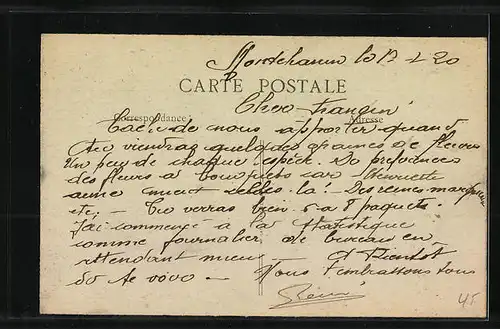 Montchanin le 13 - 1 - 20
CARTE POSTALE
Cher frangin
Correspondance Adresse
Tache de nous apporter quand
tu viendras quelques graines de fleurs
Un peu de chaque espèce. De préférence
des fleurs à bouquets car Henriette
aime mieux celles-là. Des reines-marguerites
etc. - Tu verras bien. 5 à 8 paquets.
J'ai commencé à la statistique
comme journalier de bureau en
attendant mieux A Bientôt
Nous t'embrassons tous
Rémi
45